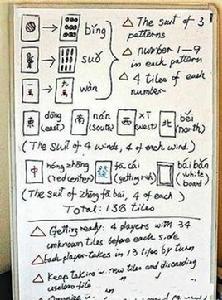 bǐng
The suit of 3 patterns
suǒ
number 1-9 in each pattern
wàn
4 tiles of each number
dōng (east)
nán (south)
xī (west)
běi (north)
(The suit of 4 winds, 4 of each wind)
hóng zhōng (red center)
fā cái (getting rich)
bái bǎn (white board)
(The suit of zhōng fā bái, 4 of each)
Total: 136 tiles
Getting ready: 4 players with 34 unknown tiles before each side
Each player takes in 13 tiles by turn
Keep taking in new tiles and discarding useless tile